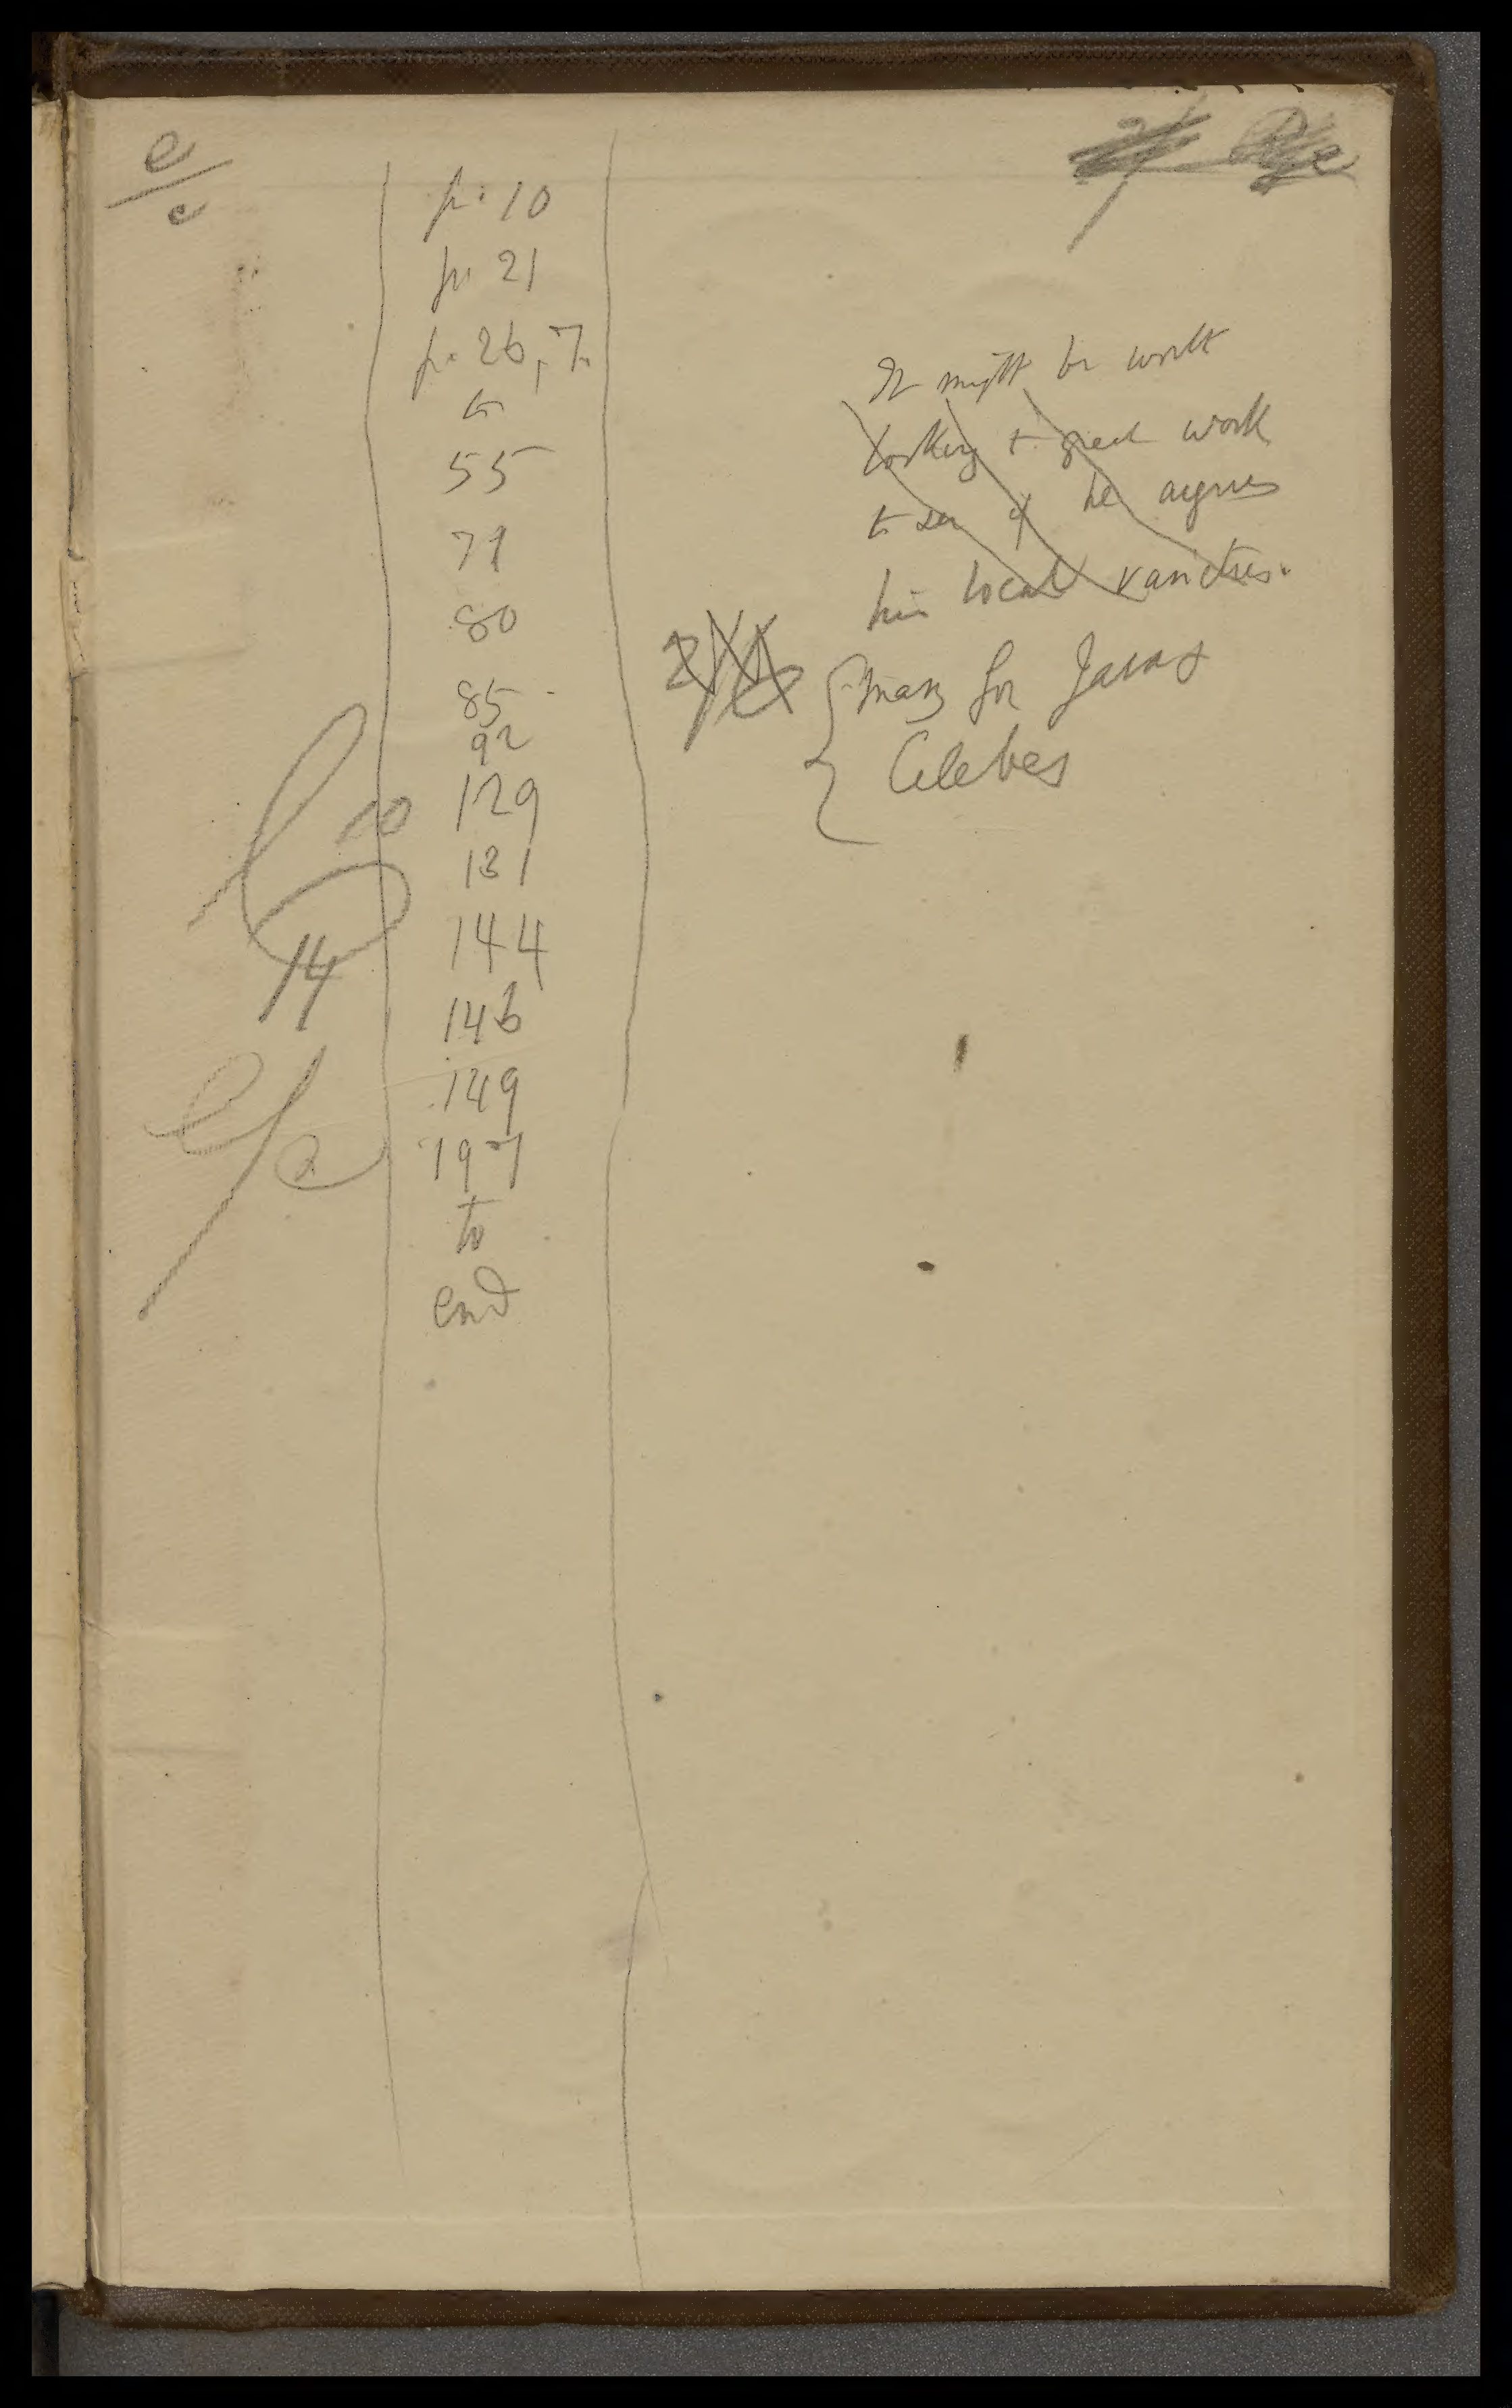 e/c
p. 10
p. 21
p. 26, 7.
to
55
71
80
85
92
129
131
144
146
149
197
to
end
10
14
It might be worth
looking to great work
to see if he argues
his local varieties.
many for Java &
Celebes